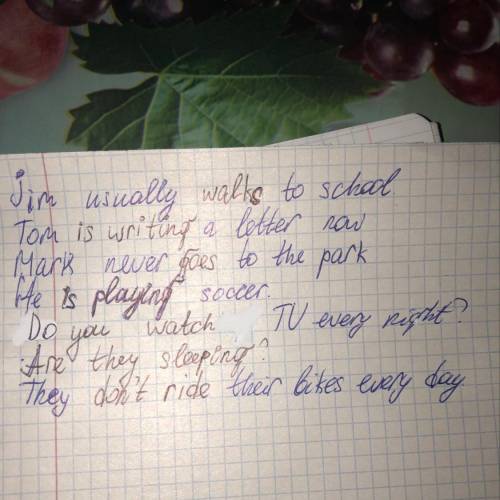 Jim usually walks to school.
Tom is writing a letter now
Mark never goes to the park
He is playing soccer.
Do you watch TV every night?
Are they sleeping?
They don't ride their bikes every day.